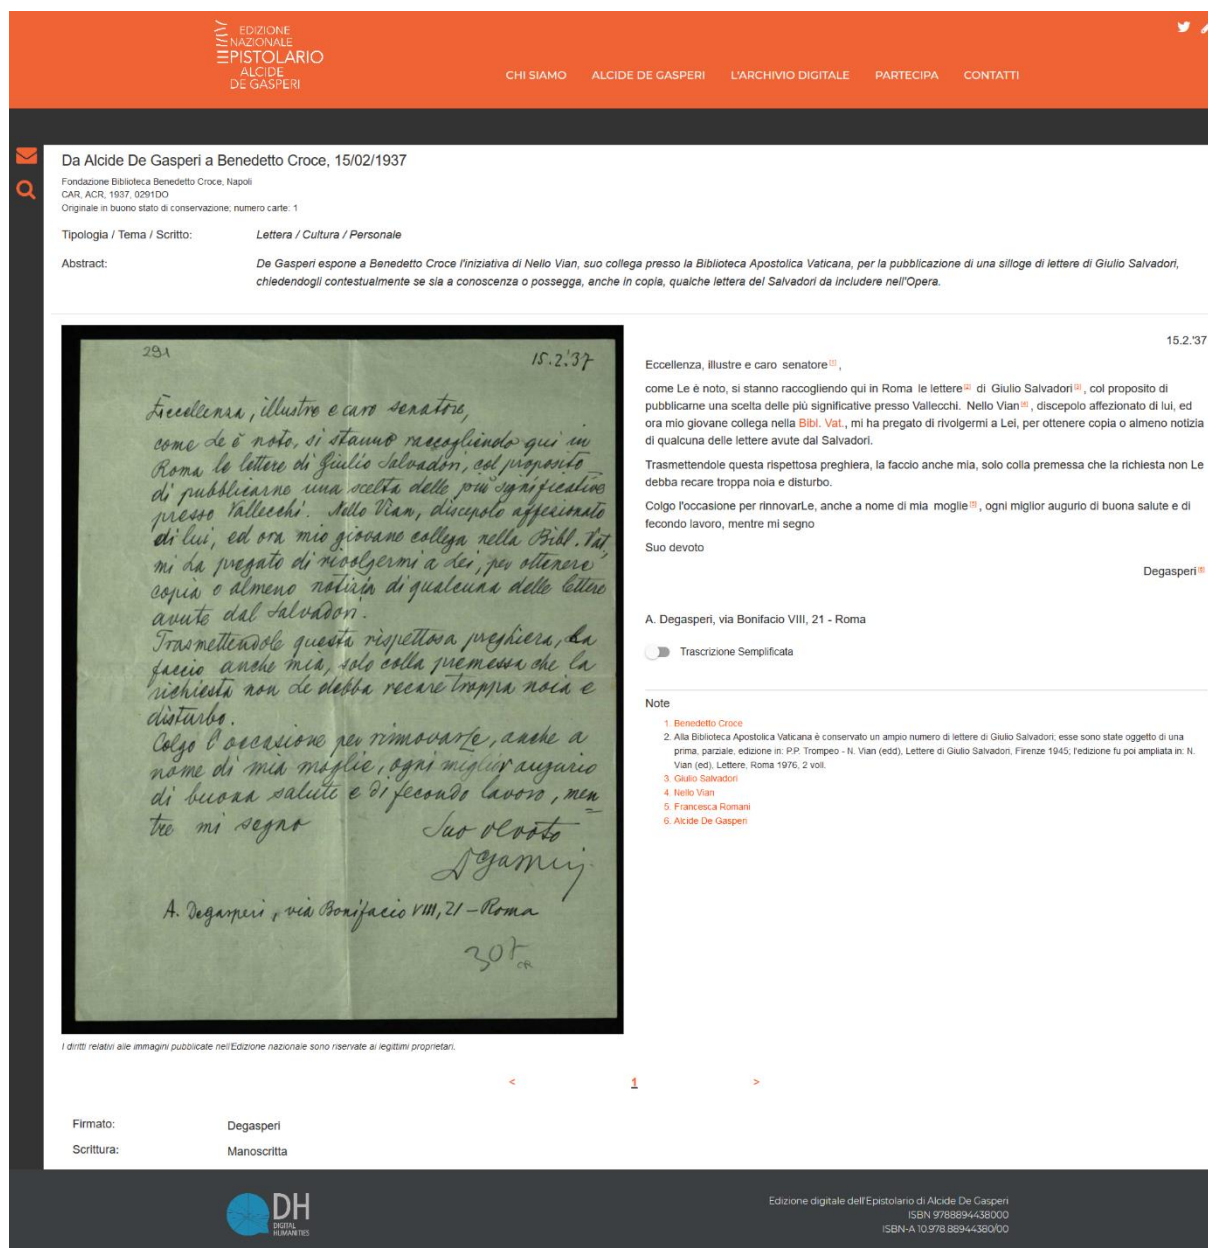 EDIZIONE
NAZIONALE
EPISTOLARIO
ALCIDE
DE GASPERI
CHI SIAMO
ALCIDE DE GASPERI
L'ARCHIVIO DIGITALE
PARTECIPA
CONTATTI
Da Alcide De Gasperi a Benedetto Croce, 15/02/1937
Fondazione Biblioteca Benedetto Croce, Napoli
CAR, ACR, 1937, 0291DO
Originale in buono stato di conservazione; numero carte: 1
Tipologia / Tema / Scritto: Lettera / Cultura / Personale
Abstract: De Gasperi espone a Benedetto Croce l'iniziativa di Nello Vian, suo collega presso la Biblioteca Apostolica Vaticana, per la pubblicazione di una silloge di lettere di Giulio Salvadori,
chiedendogli contestualmente se sia a conoscenza o possegga, anche in copia, qualche lettera del Salvadori da includere nell'Opera.
291
15.2.'37
Eccellenza, illustre e caro senatore,
come Le è noto, si stanno raccogliendo qui in
Roma le lettere di Giulio Salvadori, col proposito
di pubblicarne una scelta delle più significative
presso Vallecchi. Nello Vian, discepolo affezionato
di lui, ed ora mio giovane collega nella Bibl. Vat.,
mi ha pregato di rivolgermi a Lei, per ottenere
copia o almeno notizia di qualcuna delle lettere
avute dal Salvadori.
Trasmettendole questa rispettosa preghiera, la
faccio anche mia, solo colla premessa che la
richiesta non Le debba recare troppa noia e
disturbo.
Colgo l'occasione per rinnovarLe, anche a
nome di mia moglie, ogni miglior augurio
di buona salute e di fecondo lavoro, men
tre mi segno
Suo devoto
Degasperi
A. Degasperi, via Bonifacio VIII, 21 - Roma
307
CR
I diritti relativi alle immagini pubblicate nell'Edizione nazionale sono riservate ai legittimi proprietari.
15.2.'37
Eccellenza, illustre e caro senatore [1],
come Le è noto, si stanno raccogliendo qui in Roma le lettere [2] di Giulio Salvadori [3], col proposito di
pubblicarne una scelta delle più significative presso Vallecchi. Nello Vian [4], discepolo affezionato di lui, ed
ora mio giovane collega nella Bibl. Vat., mi ha pregato di rivolgermi a Lei, per ottenere copia o almeno notizia
di qualcuna delle lettere avute dal Salvadori.
Trasmettendole questa rispettosa preghiera, la faccio anche mia, solo colla premessa che la richiesta non Le
debba recare troppa noia e disturbo.
Colgo l'occasione per rinnovarLe, anche a nome di mia moglie [5], ogni miglior augurio di buona salute e di
fecondo lavoro, mentre mi segno
Suo devoto
Degasperi [6]
A. Degasperi, via Bonifacio VIII, 21 - Roma
Trascrizione Semplificata
Note
1. Benedetto Croce
2. Alla Biblioteca Apostolica Vaticana è conservato un ampio numero di lettere di Giulio Salvadori; esse sono state oggetto di una
prima, parziale, edizione in: P.P. Trompeo - N. Vian (edd), Lettere di Giulio Salvadori, Firenze 1945; l'edizione fu poi ampliata in: N.
Vian (ed), Lettere, Roma 1976, 2 voll.
3. Giulio Salvadori
4. Nello Vian
5. Francesca Romani
6. Alcide De Gasperi
< 1 >
Firmato: Degasperi
Scrittura: Manoscritta
DH
DIGITAL
HUMANITIES
Edizione digitale dell'Epistolario di Alcide De Gasperi
ISBN 9788894438000
ISBN-A 10.978.88944380/00